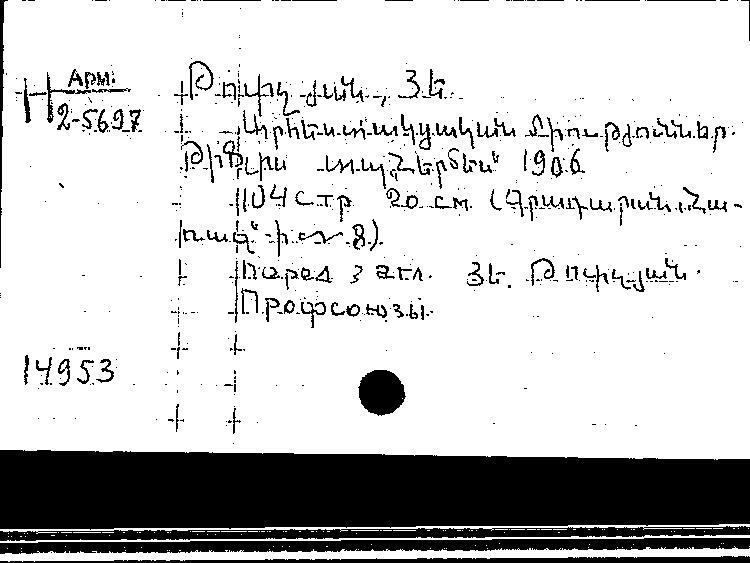 Арм.
2-5697
Թոփչյան, Յե.
Արհեստակցական միութիւններ.
Թիֆլիս տպ. „Հերմես“ 1906
104 стр 20 см (Գրադարան „Հա-
ռաջ“-ի № 8).
Перед загл. Յե. Թոփչյան.
Профсоюзы.
14953